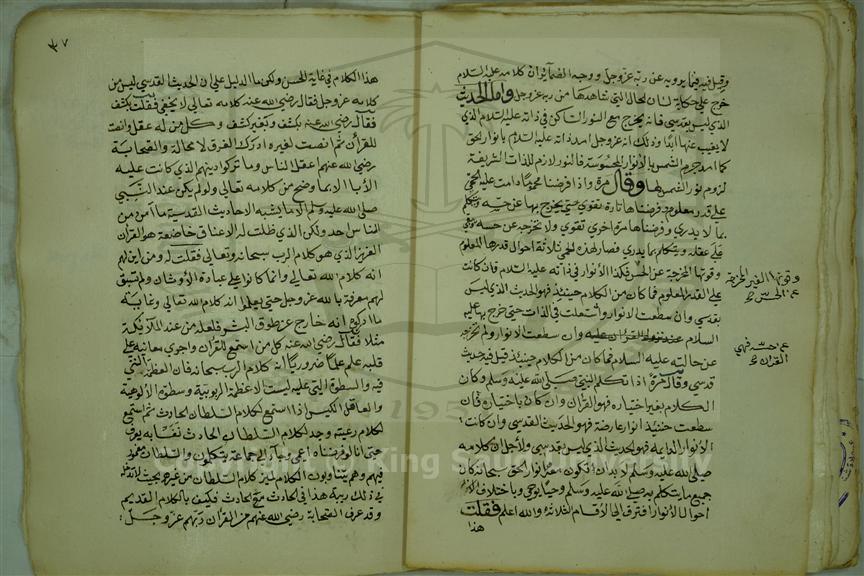 وقيل فيه فيما يرويه عن ربه عز وجل ووجه الضمائر ان كلامه عليه السلام
خرج على حكاية لسان الحال التي شاهدها من ربه عز وجل واما الحديث
الذي ليس بقدسي فانه يخرج مع النور الساكن في ذاته عليه السلام الذي
لا يغيب عنها ابدا وذلك انه عز وجل امد ذاته عليه السلام بانوار الحق
كما امد جرم الشمس بالانوار المحسوسة فالنور لازم للذات الشريفة
لزوم نور الشمس لها وقال مرة واذا فرضنا محموما دامت عليه الحمى
على قدر معلوم وفرضناها تارة تقوى حتى يخرج بها عن حسه ويتكلم
بما لا يدري وفرضناها مرة اخرى تقوى ولا تخرجه عن حسه ويبقى
على عقله ويتكلم بما يدري فصار لهذه الحمى ثلاثة احوال قدرها المعلوم
وقوتها المخرجة عن الحس فكذا الانوار في ذاته عليه السلام فان كانت
على القدر المعلوم فما كان من الكلام حينئذ فهو الحديث الذي ليس
بقدسي وان سطعت الانوار واشتعلت في الذات حتى خرج بها عليه
السلام عن حالته عليه السلام وان سطعت الانوار ولم تخرجه
عن حالته عليه السلام فما كان من الكلام حينئذ قيل فيه حديث
قدسي وقال مرة اذا تكلم النبي صلى الله عليه وسلم وكان
الكلام بغير اختياره فهو القرآن وان كان باختياره فان
سطعت حينئذ انوار عارضة فهو الحديث القدسي وان كانت
الانوار الدايمة فهو الحديث الذي ليس بقدسي ولاجل ان كلامه
صلى الله عليه وسلم لا بد ان تكون معه انوار الحق سبحانه كان
جميع ما يتكلم به صلى الله عليه وسلم وحيا يوحى وباختلاف
احوال الانوار افترق الى الاقسام الثلاثة والله اعلم فقلت
هذا
وقوتها الغير المخرجة
عن الحس
عن حسه فهي
القرآن
هذا الكلام في غاية الحسن ولكن ما الدليل على ان الحديث القدسي ليس من
كلامه عز وجل فقال رضي الله عنه كلامه تعالى لا يخفى فقلت بكشف
فقال رضي الله عنه بكشف وبغير كشف وكل من له عقل وانصت
للقرآن ثم انصت لغيره ادرك الفرق لا محالة والصحابة
رضي الله عنهم اعقل الناس وما تركوا دينهم الذي كانت عليه
الآباء الا بما وضح من كلامه تعالى ولو لم يكن عند النبي
صلى الله عليه وسلم الا ما يشبه الاحاديث القدسية ما آمن من
الناس احد ولكن الذي ظلت له الاعناق خاضعة هو القرآن
العزيز الذي هو كلام الرب سبحانه وتعالى فقلت له ومن اين لهم
انه كلام الله تعالى وانما كانوا على عبادة الاوثان ولم تسبق
لهم معرفة بالله عز وجل حتى يعلموا انه كلام الله تعالى وغاية
ما ادركوه انه خارج عن طوق البشر فلعله من عند الملائكة
مثلا فقال رضي الله عنه كل من استمع القرآن واجرى معانيه على
قلبه علم علما ضروريا انه كلام الرب سبحانه فان العظمة التي
فيه والسطوة التي عليه ليست الا عظمة الربوبية وسطوة الالوهية
والعاقل الكيس اذا استمع لكلام السلطان الحادث ثم استمع
لكلام رعيته وجد لكلام السلطان الحادث نفسا به يعرف
حتى انا لو فرضناه اعمى وجاء الى جماعة يتكلمون والسلطان مغمور
فيهم وهم يتناوبون الكلام لميز كلام السلطان من غيره بحيث لا تدخله
في ذلك ريبة هذا في الحادث مع الحادث فكيف بالكلام القديم
وقد عرف الصحابة رضي الله عنهم من القرآن ربهم عز وجل